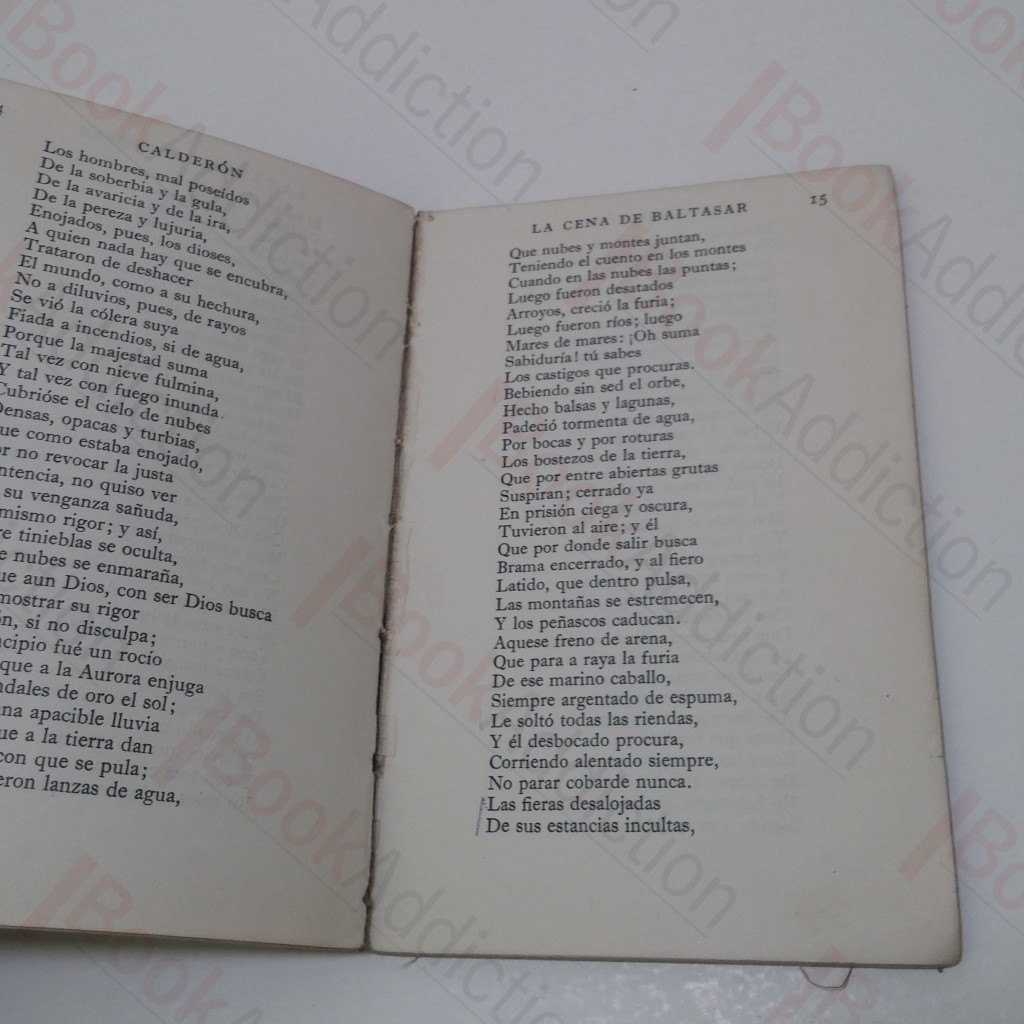 4
CALDERÓN
Los hombres, mal poseídos
De la soberbia y la gula,
De la avaricia y de la ira,
De la pereza y lujuria,
Enojados, pues, los dioses,
A quien nada hay que se encubra,
Trataron de deshacer
El mundo, como a su hechura,
No a diluvios, pues, de rayos
Se vió la cólera suya
Fiada a incendios, si de agua,
Porque la majestad suma
Tal vez con nieve fulmina,
Y tal vez con fuego inunda.
Cubrióse el cielo de nubes
Densas, opacas y turbias,
que como estaba enojado,
no revocar la justa
no quiso ver
su venganza sañuda,
mismo rigor; y así,
tinieblas se oculta,
nubes se enmaraña,
aun Dios, con ser Dios busca
mostrar su rigor
si no disculpa;
fué un rocío
que a la Aurora enjuga
de oro el sol;
apacible lluvia
a la tierra dan
con que se pula;
lanzas de agua,
LA CENA DE BALTASAR 15
Que nubes y montes juntan,
Teniendo el cuento en los montes
Cuando en las nubes las puntas;
Luego fueron desatados
Arroyos, creció la furia;
Luego fueron ríos; luego
Mares de mares: ¡Oh suma
Sabiduría! tú sabes
Los castigos que procuras.
Bebiendo sin sed el orbe,
Hecho balsas y lagunas,
Padeció tormenta de agua,
Por bocas y por roturas
Los bostezos de la tierra,
Que por entre abiertas grutas
Suspiran; cerrado ya
En prisión ciega y oscura,
Tuvieron al aire; y él
Que por donde salir busca
Brama encerrado, y al fiero
Latido, que dentro pulsa,
Las montañas se estremecen,
Y los peñascos caducan.
Aquese freno de arena,
Que para a raya la furia
De ese marino caballo,
Siempre argentado de espuma,
Le soltó todas las riendas,
Y él desbocado procura,
Corriendo alentado siempre,
No parar cobarde nunca.
Las fieras desalojadas
De sus estancias incultas,
BookAddiction